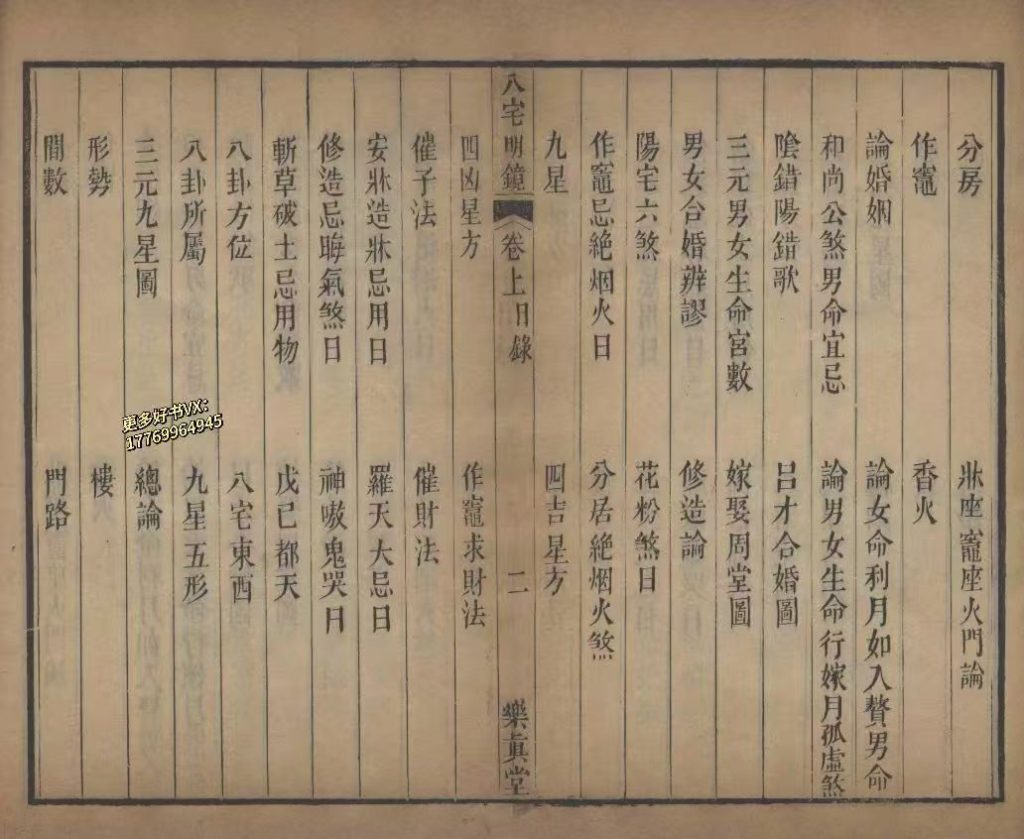 分房 牀座竈座火門論
作竈 香火
論婚姻 論女命利月如入贅男命
和尚公煞男命宜忌 論男女生命行嫁月孤虛煞
陰錯陽錯歌 呂才合婚圖
三元男女生命宮數 嫁娶周堂圖
男女合婚辨謬 修造論
陽宅六煞 花粉煞日
作竈忌絶烟火日 分居絶烟火煞
九星 四吉星方
八宅明鏡 卷上目錄 二 樂真堂
四凶星方 作竈求財法
催子法 催財法
安牀造牀忌用日 羅天大忌日
修造忌晦氣煞日 神嗷鬼哭日
斬草破土忌用物 戊已都天
八卦方位 八宅東西
八卦所屬 九星五形
三元九星圖 總論
形勢 樓
間數 門路
更多好书VX：
17769964945